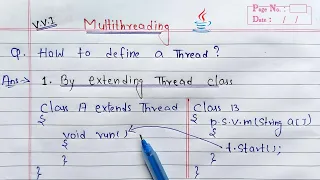 V.V.I
Multithreading
Page No. :
Date : / /
Q. How to define a Thread?
Ans→ 1. By extending Thread class
Class A extends Thread
{
void run()
{
}
}
Class B
{
P.S.V.m(String a[])
{
t.start();
}
}